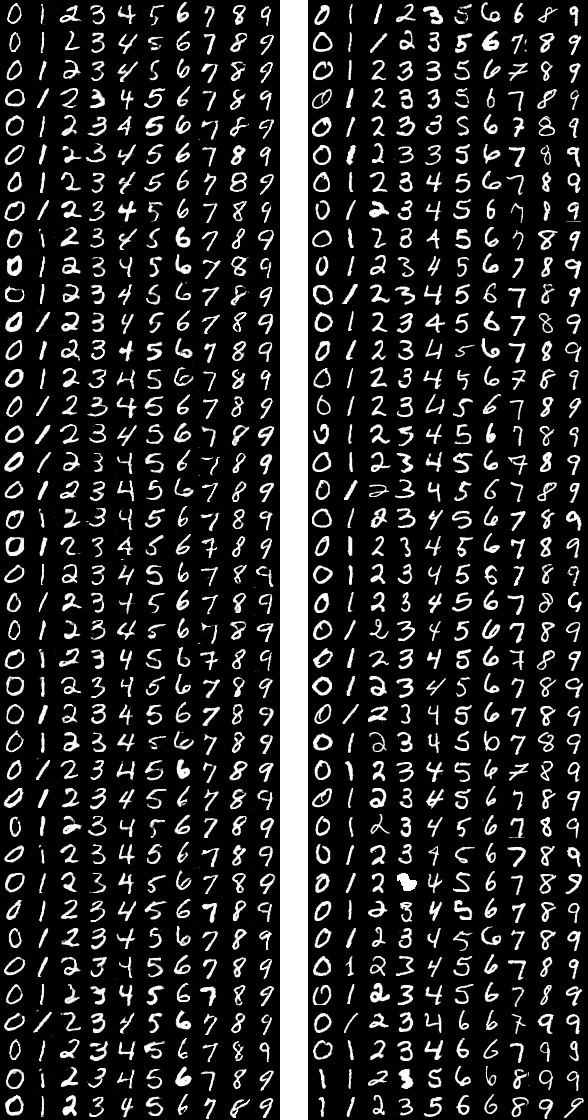 0 1 2 3 4 5 6 7 8 9
0 1 2 3 4 5 6 7 8 9
0 1 2 3 4 5 6 7 8 9
0 1 2 3 4 5 6 7 8 9
0 1 2 3 4 5 6 7 8 9
0 1 2 3 4 5 6 7 8 9
0 1 2 3 4 5 6 7 8 9
0 1 2 3 4 5 6 7 8 9
0 1 2 3 4 5 6 7 8 9
0 1 2 3 4 5 6 7 8 9
0 1 2 3 4 5 6 7 8 9
0 1 2 3 4 5 6 7 8 9
0 1 2 3 4 5 6 7 8 9
0 1 2 3 4 5 6 7 8 9
0 1 2 3 4 5 6 7 8 9
0 1 2 3 4 5 6 7 8 9
0 1 2 3 4 5 6 7 8 9
0 1 2 3 4 5 6 7 8 9
0 1 2 3 4 5 6 7 8 9
0 1 2 3 4 5 6 7 8 9
0 1 2 3 4 5 6 7 8 9
0 1 2 3 4 5 6 7 8 9
0 1 2 3 4 5 6 7 8 9
0 1 2 3 4 5 6 7 8 9
0 1 2 3 4 5 6 7 8 9
0 1 2 3 4 5 6 7 8 9
0 1 2 3 4 5 6 7 8 9
0 1 2 3 4 5 6 7 8 9
0 1 2 3 4 5 6 7 8 9
0 1 2 3 4 5 6 7 8 9
0 1 2 3 4 5 6 7 8 9
0 1 2 3 4 5 6 7 8 9
0 1 2 3 4 5 6 7 8 9
0 1 2 3 4 5 6 7 8 9
0 1 2 3 4 5 6 7 8 9
0 1 2 3 4 5 6 7 8 9
0 1 2 3 4 5 6 7 8 9
0 1 2 3 4 5 6 7 8 9
0 1 2 3 4 5 6 7 8 9
0 1 2 3 4 5 6 7 8 9
0 1 1 2 3 5 6 6 8 9
0 1 1 2 3 5 6 7 8 9
0 1 2 3 3 5 6 7 8 9
0 1 2 3 3 5 6 7 8 9
0 1 2 3 3 5 6 7 8 9
0 1 2 3 3 5 6 7 8 9
0 1 2 3 4 5 6 7 8 9
0 1 2 3 4 5 6 7 8 9
0 1 2 3 4 5 6 7 8 9
0 1 2 3 4 5 6 7 8 9
0 1 2 3 4 5 6 7 8 9
0 1 2 3 4 5 6 7 8 9
0 1 2 3 4 5 6 7 8 9
0 1 2 3 4 5 6 7 8 9
0 1 2 3 4 5 6 7 8 9
0 1 2 5 4 5 6 7 8 9
0 1 2 3 4 5 6 7 8 9
0 1 2 3 4 5 6 7 8 9
0 1 2 3 4 5 6 7 8 9
0 1 2 3 4 5 6 7 8 9
0 1 2 3 4 5 6 7 8 9
0 1 2 3 4 5 6 7 8
0 1 2 3 4 5 6 7 8 9
0 1 2 3 4 5 6 7 8 9
0 1 2 3 4 5 6 7 8 9
0 1 2 3 4 5 6 7 8 9
0 1 2 3 4 5 6 7 8 9
0 1 2 3 4 5 6 7 8 9
0 1 2 3 4 5 6 7 8 9
0 1 2 3 4 5 6 7 8 9
0 1 2 3 4 5 6 7 8 9
0 1 2 4 5 6 7 8 9
0 1 2 3 4 5 6 7 8 9
0 1 2 3 4 5 6 7 8 9
0 1 2 3 4 5 6 7 8 9
0 1 2 3 4 5 6 7 8 9
0 1 2 3 4 6 6 7 9 9
0 1 2 3 4 6 6 7 9
1 1 2 3 5 6 6 8 9 9
1 1 2 3 5 6 8 9 9 8